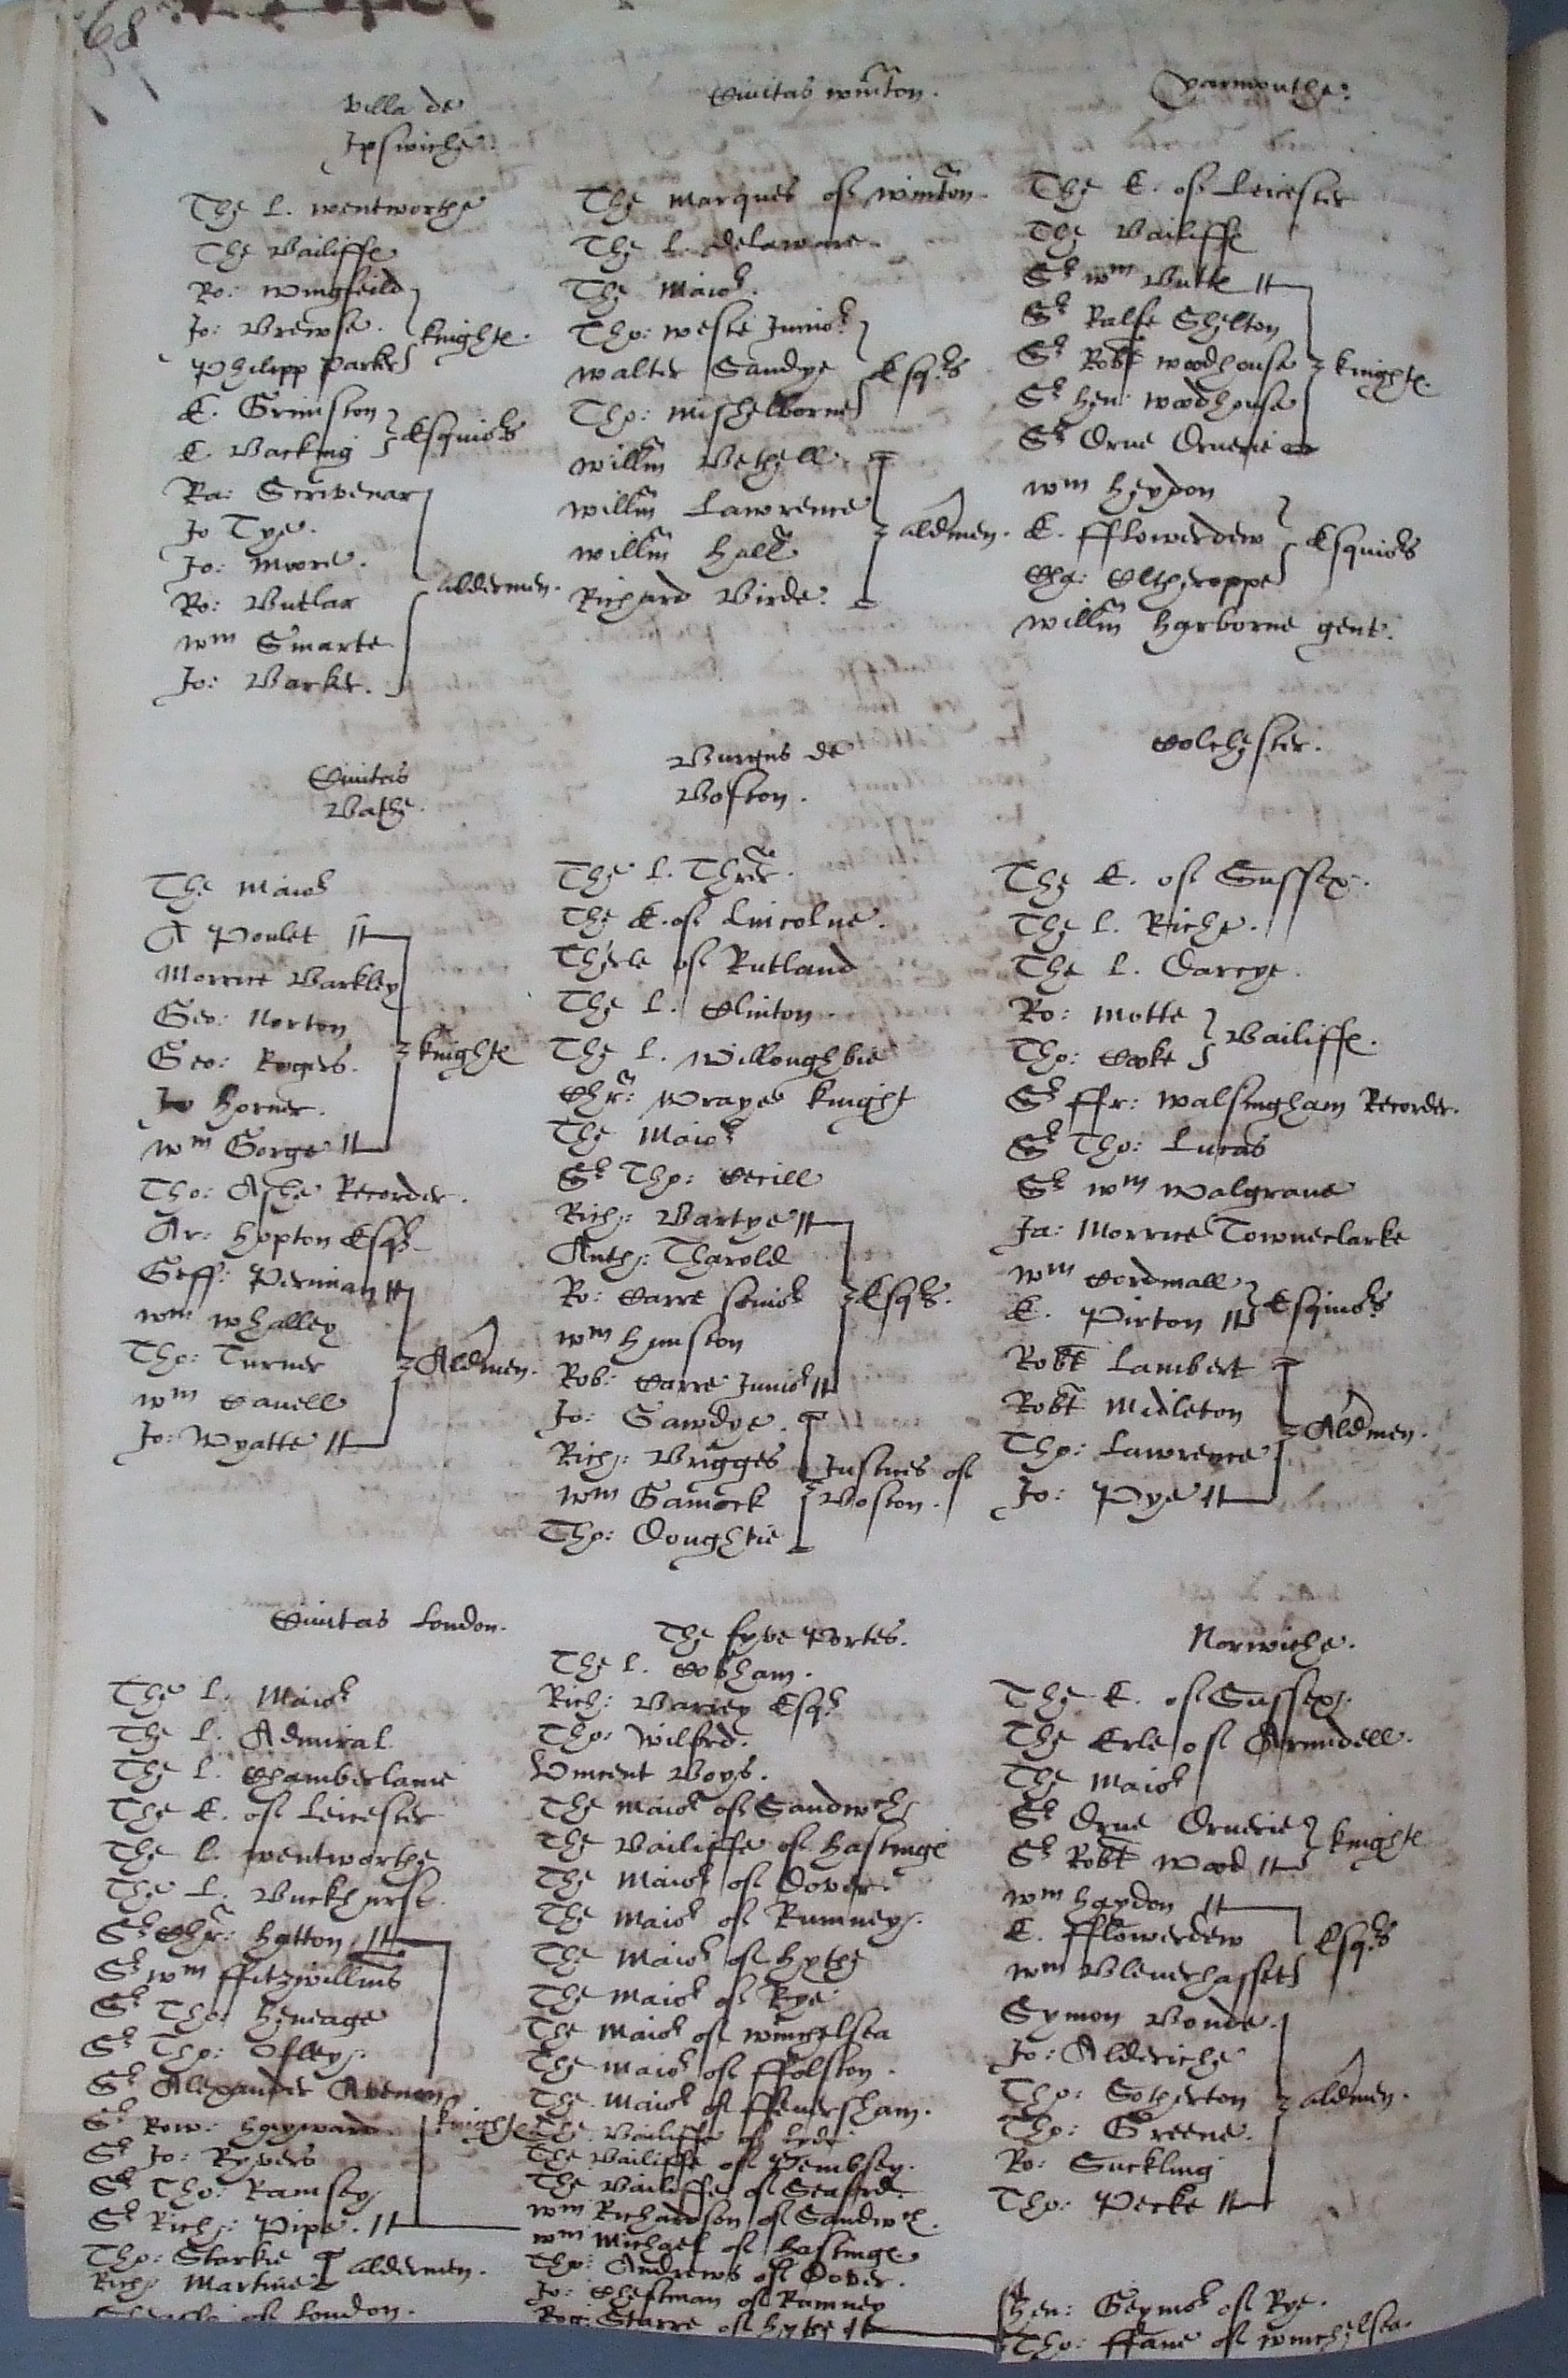 68
Villa de
Ipswiche.
The L. Wentworthe
The Bailiffe
Ro: Wingfeild
Jo: Brewse. knighte.
Philipp Parker
E. Grimston
E. Backing Esquiors
Ra: Scrivenar
Jo Tye.
Jo: Moore.
Ro: Butlar aldermen.
Wm Smarte
Jo: Barker.
Civitas Winton.
The Marques of Winton.
The L. Delaware.
The Maior.
Tho: Weste Junior
Walter Sandye Esqrs
Tho: Mishelborne
Willm Bethell
Willm Lawrence
Willm Hall aldmen.
Richard Birde.
Yarmouthe.
The E. of Leicester
The Bailiffe
Sr Wm Butte
Sr Ralfe Shelton
Sr Robt Woodhouse knighte.
Sr Hen: Woodhouse
Sr Drue Druerie
Wm Heydon
E. fflowerdew Esquiors
Cha: Calthroppe
Willm Harborne gent.
Civitas
Bathe.
The Maior
A Poulet
Morrice Barkley
Geo: Norton
Geo: Rogers. knighte
Jo Horner.
Wm Gorge
Tho: Ashe Recorder.
Ar: Hopton Esqr
Geff: Perman
Wm Whalley
Tho: Turner Aldmen.
Wm Cavell
Jo: Wyatte
Burgus de
Boston.
The L. Threr.
The E. of Lincolne.
Therle of Rutland
The L. Clinton.
The L. Willoughbie
Chr: Wraye knight
The Maior
Sr Tho: Cecill
Rich: Bartye
Anth: Tharold
Ro: Carre senior Esqrs.
Wm Hunston
Rob: Carre Junior
Jo: Sawdye.
Rich: Brigges Justices of
Wm Gamock Boston.
Tho: Doughtie
Colchester.
The E. of Sussex.
The L. Riche.
The L. Darcye.
Ro: Motte
Tho: Cooke Bailiffe.
Sr ffr: Walsingham Recorder.
Sr Tho: Lucas
Sr Wm Walgrave
Ja: Morrice Towneclarke
Wm Cardinall
E. Pirton Esquiors
Robt Lambert
Robt Midleton
Tho: Lawrence Aldmen.
Jo: Pye
Civitas London.
The L. Maior
The L. Admiral
The L. Chamberlaine
The E. of Leicester
The L. Wentworthe
The L. Buckhurst.
Sr Chr: Hatton
Sr Wm ffitzwillms
Sr Tho: Heneage
Sr Tho: Offley.
Sr Alexander Avenon
Sr Row: Hayward. knighte
Sr Jo: Ryvers
Sr Tho: Ramsey
Sr Rich: Pipe.
Tho: Starkie aldermen.
Rich: Martine
of London.
The fyve Portes.
The L. Cobham.
Rich: Barrey Esqr
Tho: Wilford.
Vincent Boys.
The Maior of Sandwch
The Bailiffe of Hastinge
The Maior of Dover.
The Maior of Rumney.
The Maior of Hythe
The Maior of Rye
The Maior of Winchelsea
The Maior of ffolston.
The Maior of ffeversham.
The Bailiffe of Lyde
The Bailiffe of Pembsey.
The Bailiffe of Seaford.
Wm Richardson of Sandwch.
Wm Michael of Hastinge
Tho: Andrewes of Dover.
Jo: Cheseman of Ramney
Rog: Starre of Hythe
Norwiche.
The E. of Sussex.
The Erle of Arundell.
The Maior
Sr Drue Druerie
Sr Robt Wood knighte
Wm Haydon
E. fflowerdew Esqrs
Wm Blenerhassett
Symon Bowde.
Jo: Aldriche
Tho: Sotherton aldmen.
Tho: Greene.
Ro: Suckling
Tho: Pecke
Hen: Geymor of Rye.
Tho: ffane of Winchelsea.